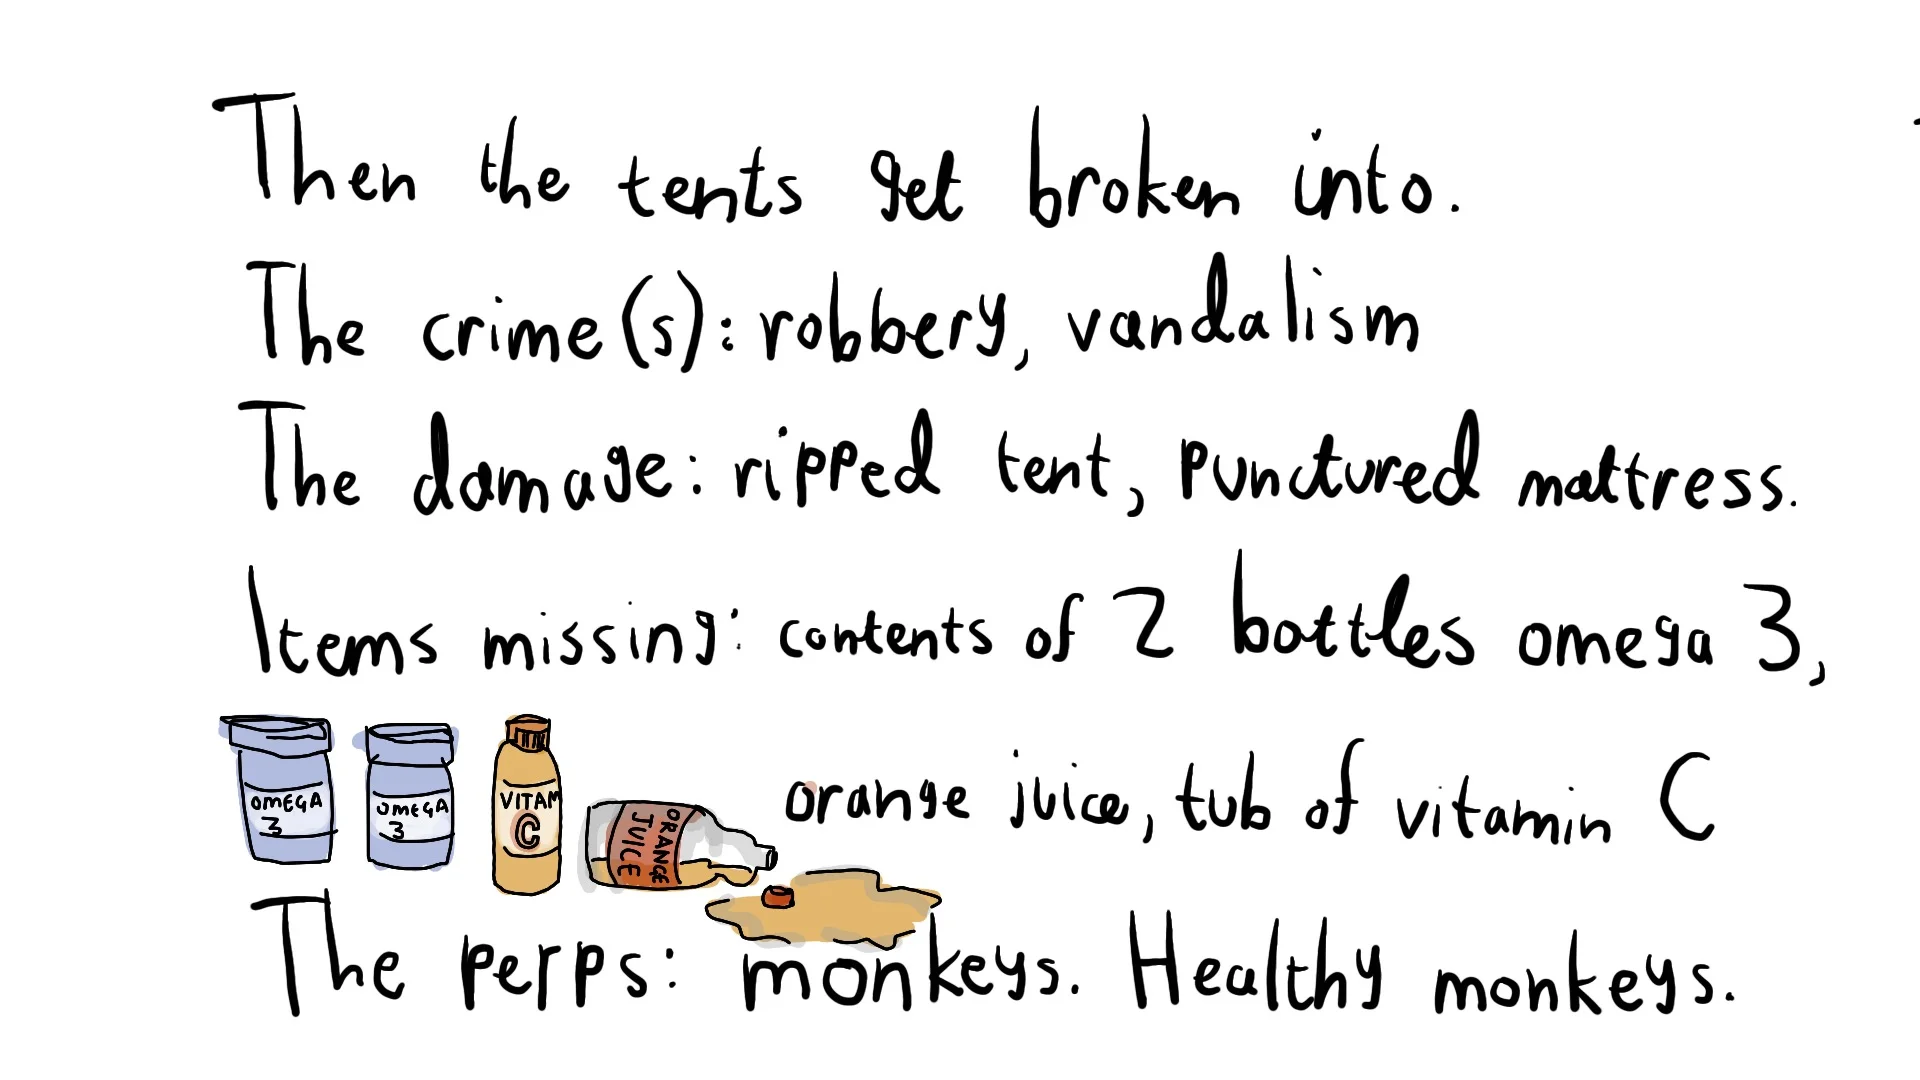 Then the tents get broken into.
The crime(s): robbery, vandalism
The damage: ripped tent, punctured mattress.
Items missing: contents of 2 bottles omega 3,
OMEGA
3
OMEGA
3
VITAM
C
ORANGE
JUICE
orange juice, tub of vitamin C
The perps: monkeys. Healthy monkeys.